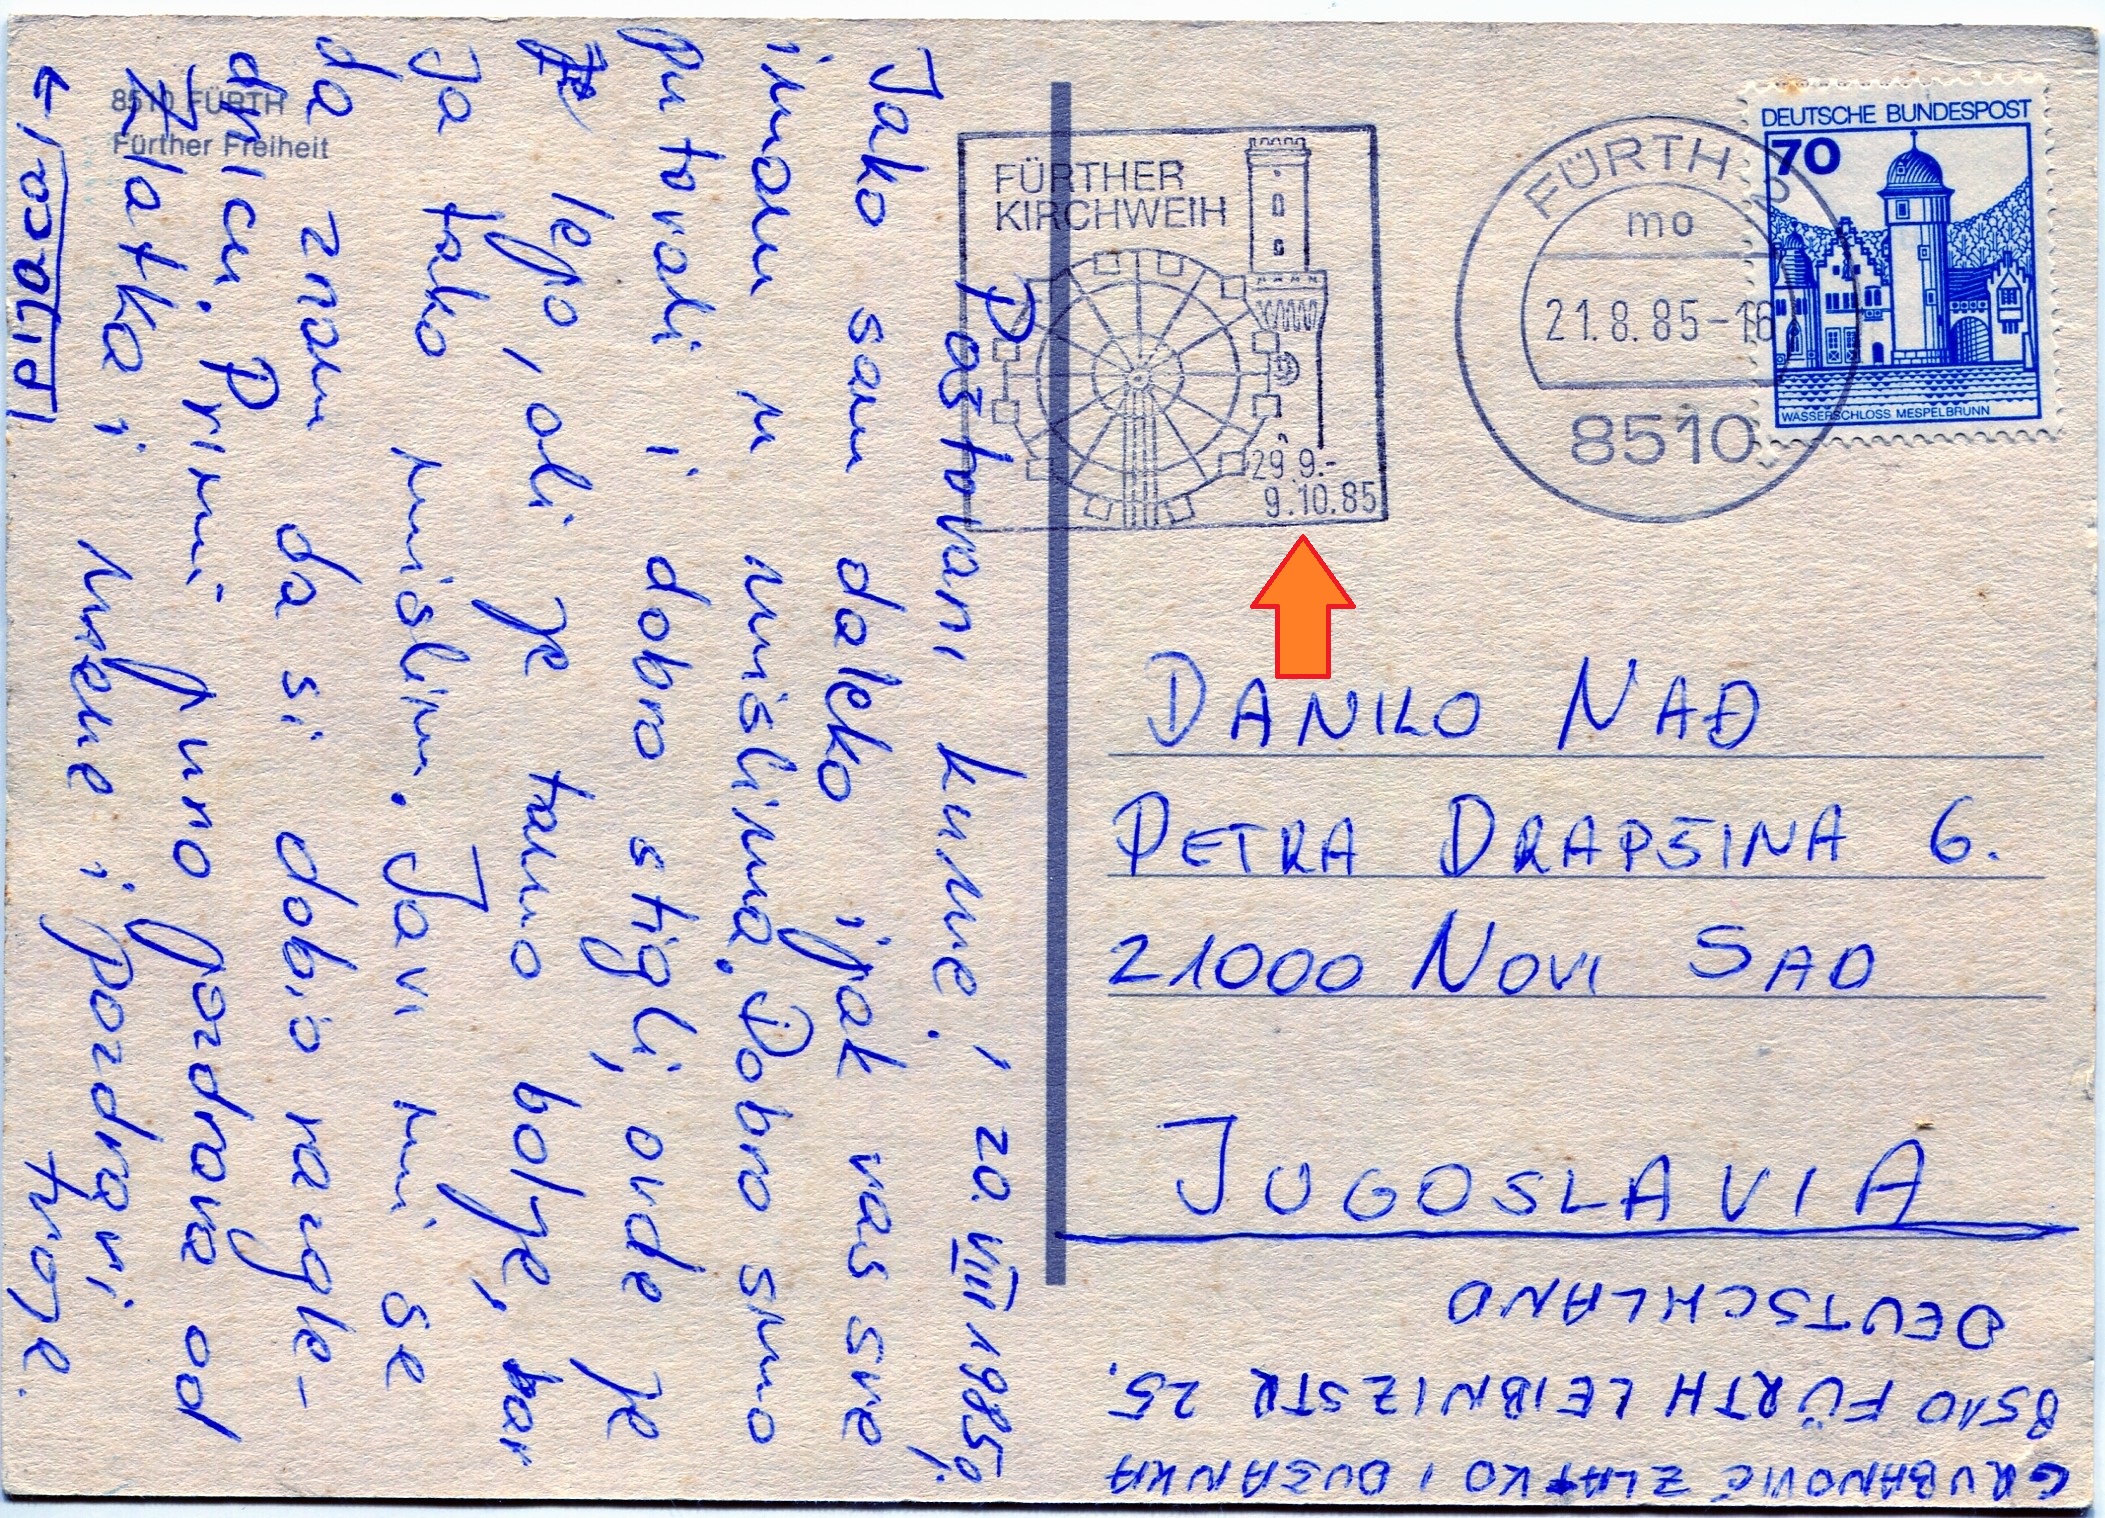 8510 FÜRTH
Fürther Freiheit
FÜRTHER
KIRCHWEIH
29.9.-
9.10.85
FÜRTH
mo
21.8.85-16
8510
DEUTSCHE BUNDESPOST
70
WASSERSCHLOSS MESPELBRUNN
Poštovani kume, 20. VIII 1985g.
Jako sam daleko ipak vas sve
imam u mislima. Dobro smo
putovali i dobro stigli, ovde je
lepo, ali je tamo bolje, bar
Ja tako mislim. Javi mi se
da znam da si dobio razgle-
dnicu. Primi puno pozdrava od
Zlatka i mene i pozdravi
tvoje.
DANILO NAĐ
PETRA DRAPŠINA 6.
21000 NOVI SAD
JUGOSLAVIA
GRUBANOVIĆ ZLATKO I DUŠANKA
8510 FÜRTH LEIBNIZSTR 25.
DEUTSCHLAND